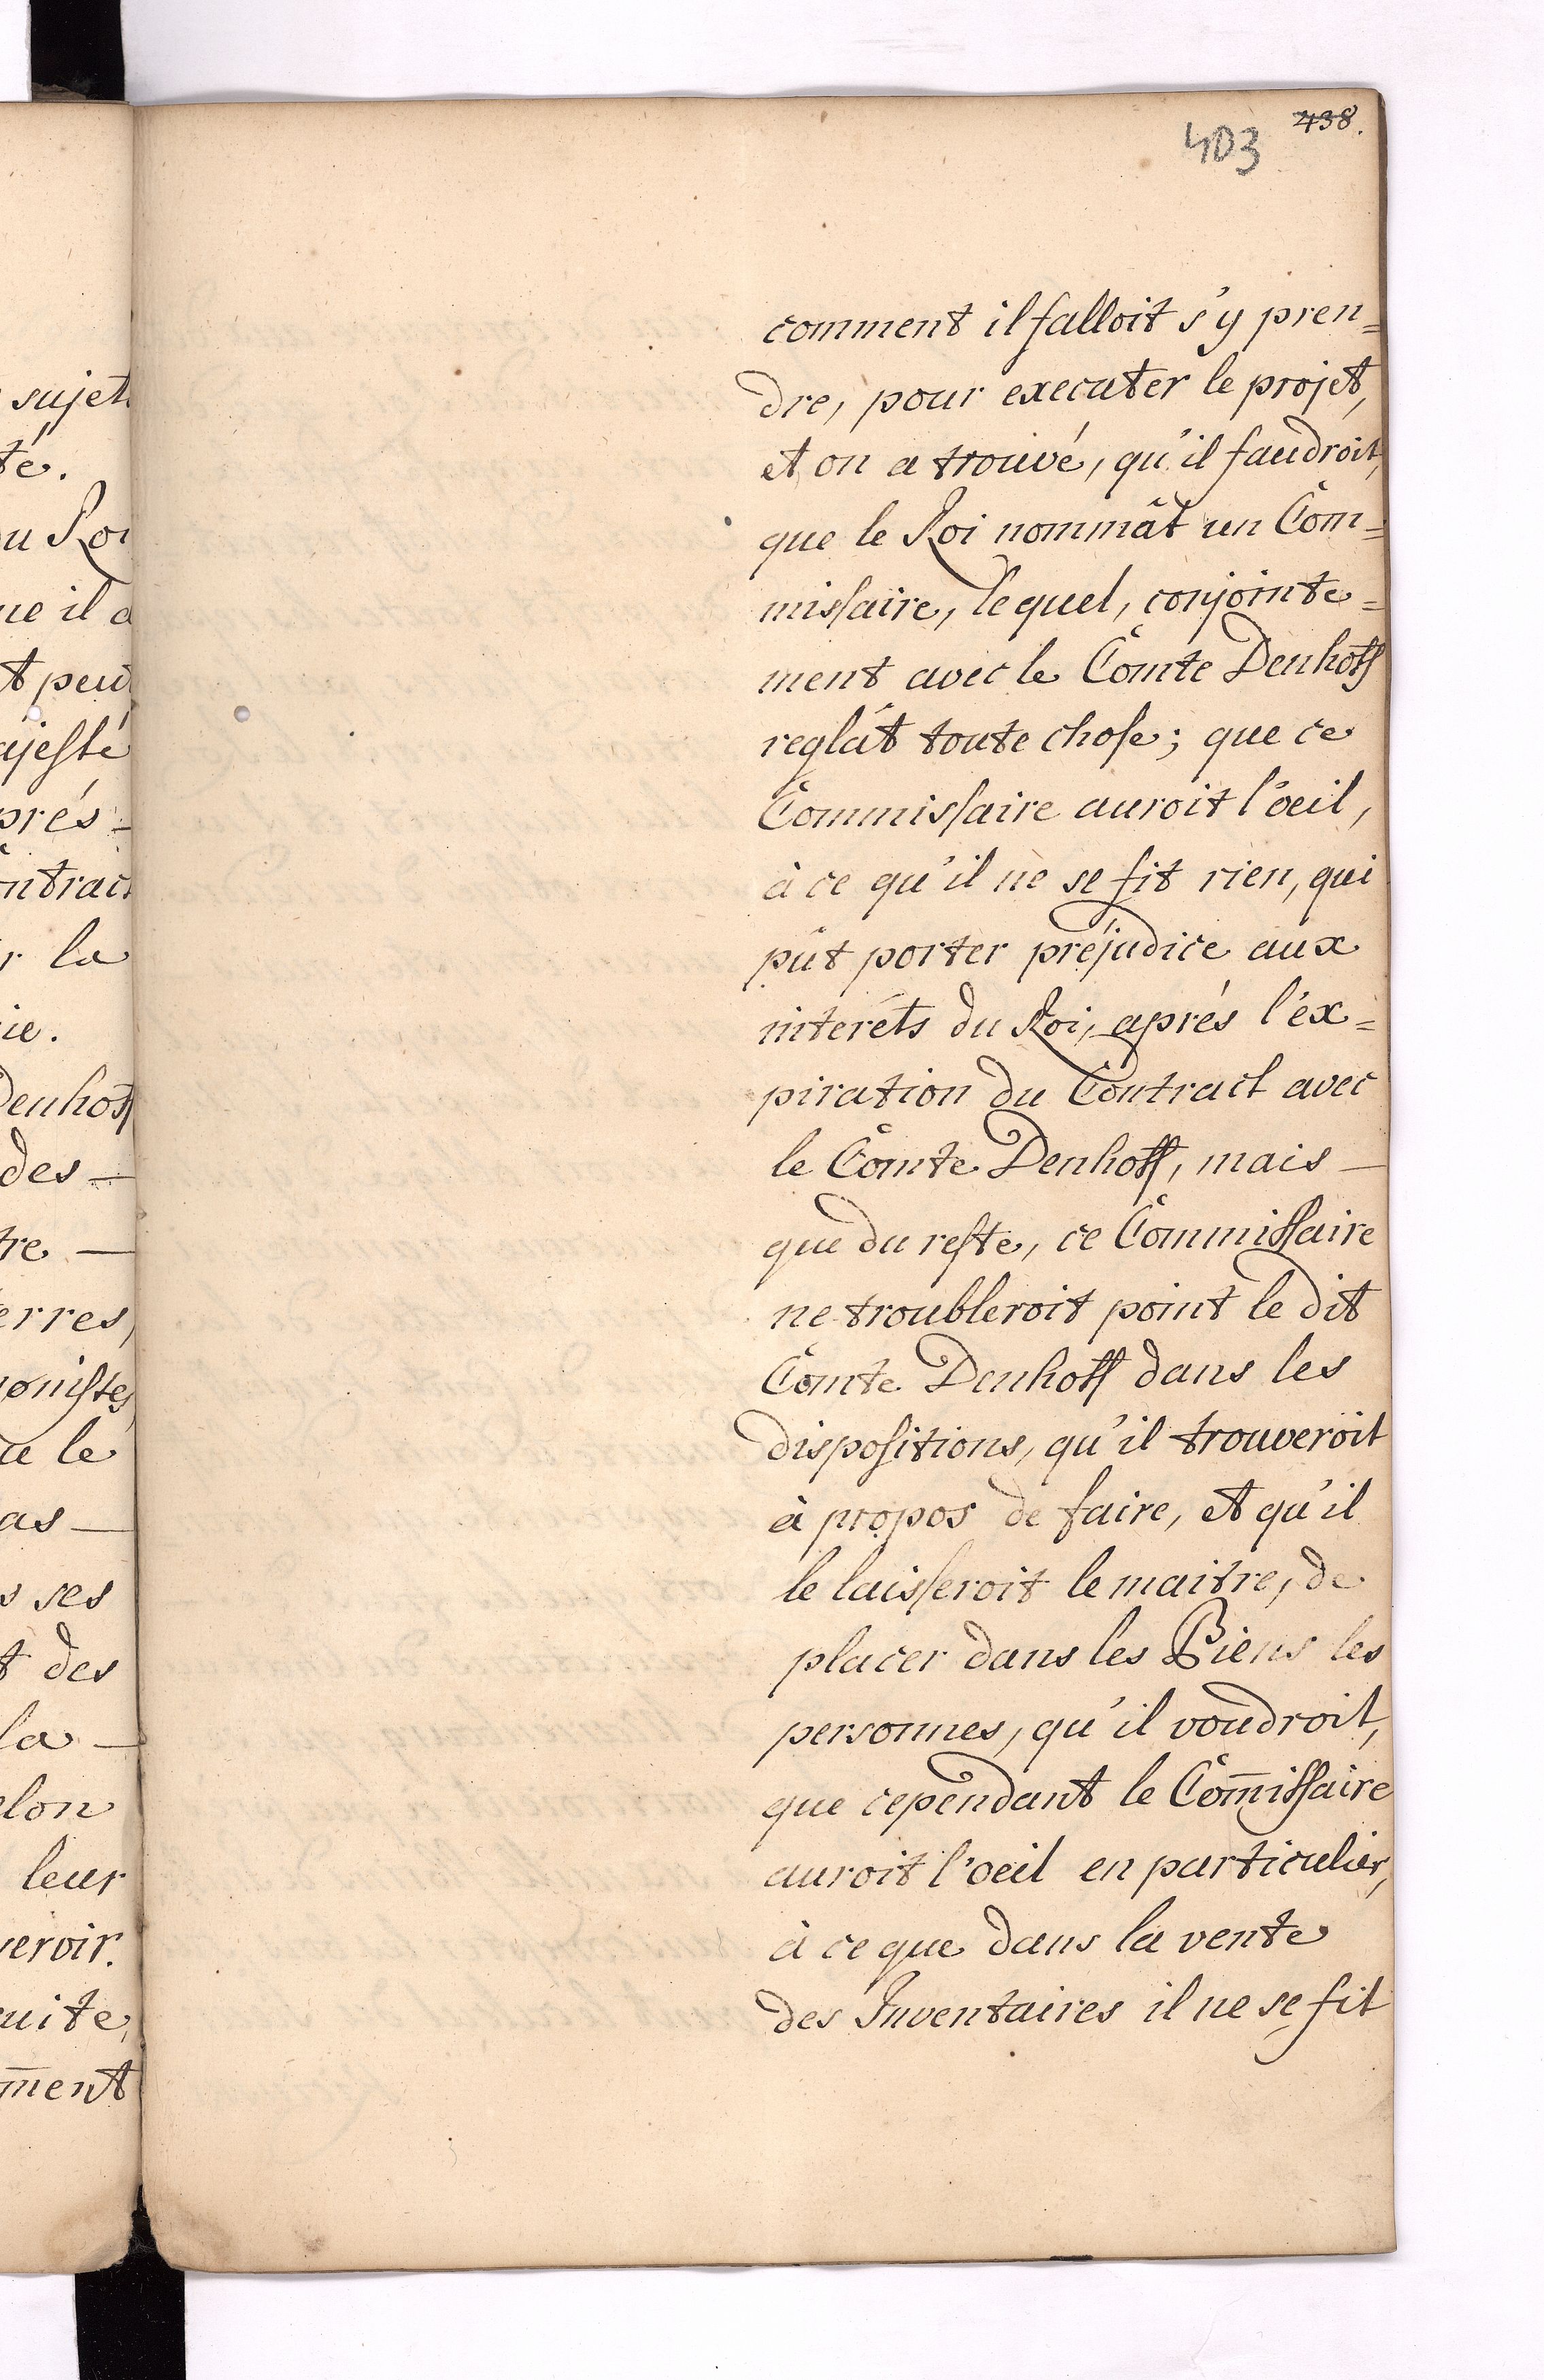 438.
403
sujet
té.
u Roi
ue il a
t peut
ajesté
prés-
ontract
r la
ie.
Denhoff
des —
tre —
erres,
onistes
u le
as —
s ses
t des
la —
elon
leur
veroir.
uite,
m̄ent
comment il falloit s'y pren=
dre, pour executer le projet,
et on a trouvé, qu'il faudroit,
que le Roi nommât un Com=
missaire, lequel, conjointe=
ment avec le Comte Denhoff
reglât toute chose; que ce
Commissaire auroit l'oeil,
à ce qu'il ne se fit rien, qui
pût porter préjudice aux
interéts du Roi, aprés l'éx=
piration du Contract avec
le Comte Denhoff, mais —
que du reste, ce Commissaire
ne troubleroit point le dit
Comte Denhoff dans les
dispositions, qu'il trouveroit
à propos de faire, et qu'il
le laisseroit le maitre, de
placer dans les Biens les
personnes, qu'il voudroit,
que cependant le Com̄issaire
auroit l'oeil en particulier,
à ce que dans la vente
des Inventaires il ne se fit